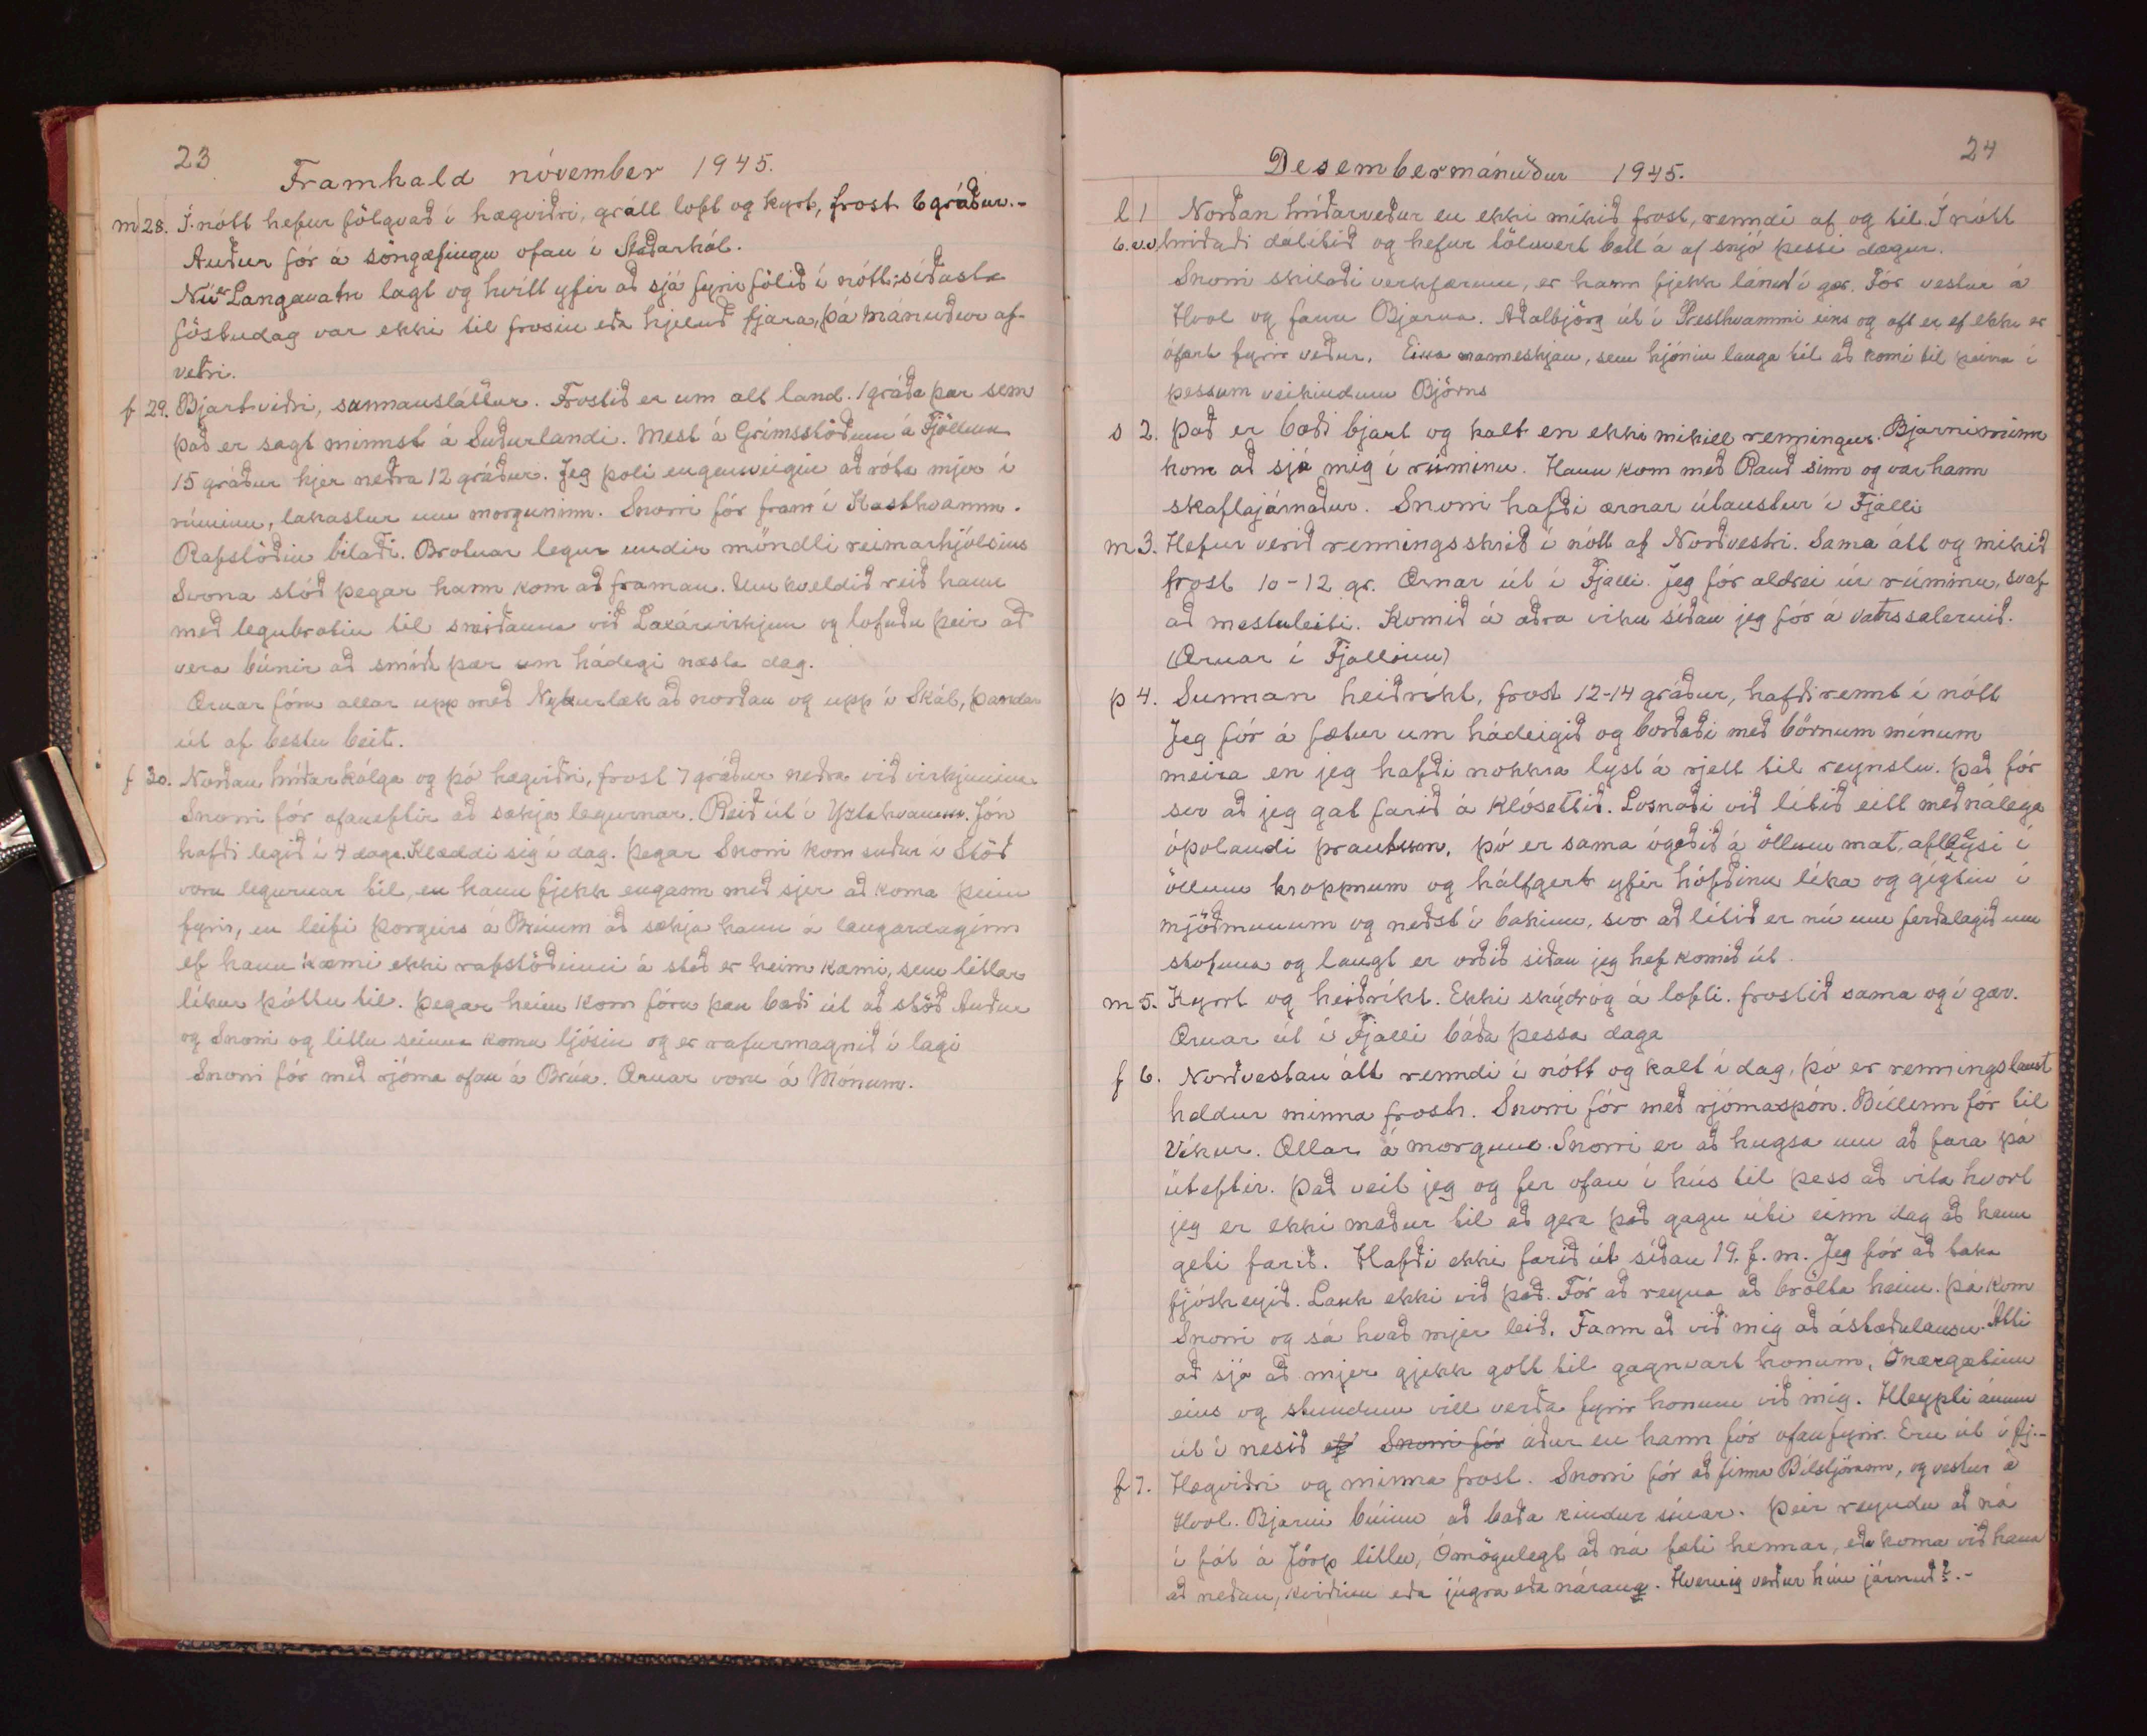 23
Framhald nóvember 1945.
m 28. Í nótt hefur fölgvað í hægviðri, gráll loft og kyrt, frost 6 gráður.-
Auður fór á söngæfingu ofan í Staðarhól.
Nú er Langavatn lagt og hvítt yfir að sjá fyrir fölið í nótt; síðasta
föstudag var ekki til frosin eða hjeluð fjara, þá mánuður af
vetri.
f 29. Bjartviðri, sunnansláttur. Frostið er um alt land. 1 gráða þar sem
það er sagt minnst á Suðurlandi. Mest á Grímsstöðum á Fjöllum
15 gráður hjer neðra 12 gráður. Jeg þoli engenveigin að róta mjer í
rúminu, lakastur um morguninn. Snorri fór fram í Kasthvamm.
Rafstöðin bilaði. Brotnar legur undir möndli reimarhjólsins
Svona stóð þegar hann kom að framan. Um kveldið reið hann
með legubrotin til smiðanna við Laxárvirkjun og lofuðu þeir að
vera búnir að smíða þær um hádegi næsta dag.
Ærnar fóru allar upp með Nykurlæk að norðan og upp í Skál, þandar
út af bestu beit.
f 30. Norðan hríðarkólga og þó hægviðri, frost 7 gráður neðra við virkjunina.
Snorri fór ofaneftir að sækja legurnar. Reið út í Yztahvamm. Jón
hafði legið í 4 daga. Klæddi sig í dag. Þegar Snorri kom suður í Stöð
voru legurnar til, en hann fjekk engann með sjer að koma þeim
fyrir, en leifi Þorgeirs á Brúum að sækja hann á laugardaginn
ef hann kæmi ekki rafstöðinni á stað er heim kæmi, sem litlar
líkur þóttu til. Þegar heim kom fóru þau bæði út að stöð Auður
og Snorri og litlu seinna komu ljósin og er rafurmagnið í lagi
Snorri fór með rjóma ofan á Brúa. Ærnar voru á Mónum.
24
Desembermánuður 1945.
l 1 Norðan hríðarveður en ekki mikið frost, renndi af og til. Í nótt
6. v.v hríðaði dálítið og hefur tölwert bætt á af snjó þessi dægur.
Snorri skilaði verkfærum, er hann fjekk lánuð í gær. Fór vestur á
Hvol og fann Bjarna. Aðalbjörg út í Presthvammi eins og oft er ef ekki er
ófært fyrir veður. Eina manneskjan, sem hjónin langa til að komi til þeirra í
þessum veikindum Björns
s 2. Það er bæði bjart og kalt en ekki mikill renningur. Bjarni minn
kom að sjá mig í rúminu. Hann kom með Rauð sinn og var hann
skaflajárnaður. Snorri hafði ærnar útaustur í Fjalli
m 3. Hefur verið renningsskrið í nótt af Norðvestri. Sama átt og mikið
frost 10-12 gr. Ærnar út í Fjalli. Jeg fór aldrei úr rúminu, svaf
að mestuleiti. Komið á aðra viku síðan jeg fór á vatnssalernið.
(Ærnar í Fjallinu)
þ 4. Sunnan heiðríkt, frost 12-14 gráður, hafði rennt í nótt
Jeg fór á fætur um hádeigið og borðaði með börnum mínum
meira en jeg hafði nokkra lyst á rjett til reynslu. Það fór
svo að jeg gat farið á Klósettið. Losnaði við lítið eitt með nálega
óþolandi þrautum, þó er sama ógeðið á öllum mat, aflleysi í
öllum kroppnum og hálfgert yfir höfðinu líka og gigtin í
mjöðmunum og neðst í bakinu, svo að lítið er nú um ferðalagið um
stofuna og langt er orðið síðan jeg hef komið út.
m 5. Kyrrt og heiðríkt. Ekki skýdróg á lofti. frostið sama og í gær.
Ærnar út í Fjalli báða þessa daga
f 6. Norðvestan átt renndi í nótt og kalt í dag, þó er renningslaust
heldur minna frost. Snorri fór með rjómaspón. Bíllinn fór til
Víkur. Ællar á morgun. Snorri er að hugsa um að fara þá
úteftir. Það veit jeg og fer ofan í hús til þess að vita hvort
jeg er ekki maður til að gera það gagn úti einn dag að hann
geti farið. Hafði ekki farið út síðan 19. f. m. Jeg fór að taka
fjósheyið. Lauk ekki við það. Fór að reyna að brölta heim. Þá kom
Snorri og sá hvað mjer leið. Fann að við mig að ástæðulausu. Átti
að sjá að mjer gjekk gott til gagnvart honum, Ónærgætinn
eins og stundum vill verða fyrir honum við mig. Hleypti ánum
út í nesið ef Snorri fór áður en hann fór ofanfyrir. Eru út í fj.-
f 7. Hægviðri og minna frost. Snorri fór að finna Bílstjórann, og vestur á
Hvol. Bjarni búinn að baða kindur sínar. Þeir reyndu að ná
í fót á Jörp litlu, Ómögulegt að ná fæti hennar, eða koma við hana
að neðan, kviðinn eða júgra eða nárana. Hvernig verður hún járnuð?.-